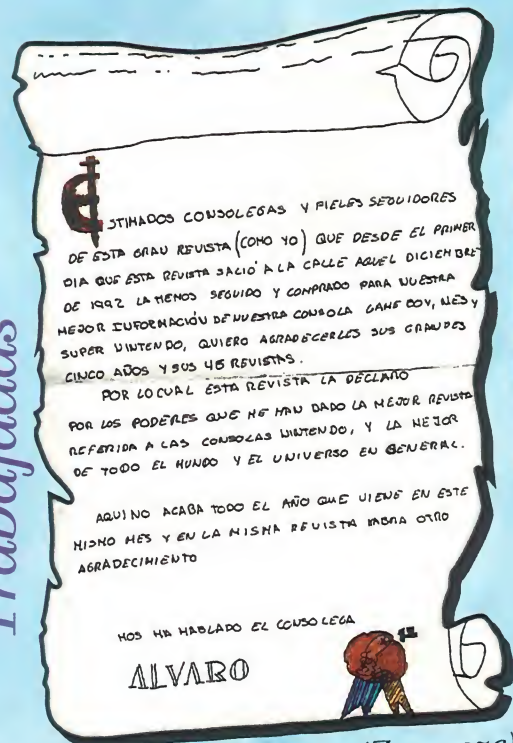 ESTIMADOS CONSOLEGAS Y FIELES SEGUIDORES
DE ESTA GRAN REVISTA (COMO YO) QUE DESDE EL PRIMER
DIA QUE ESTA REVISTA SALIÓ A LA CALLE AQUEL DICIEMBRE
DE 1992 LA HEMOS SEGUIDO Y COMPRADO PARA NUESTRA
MEJOR INFORMACIÓN DE NUESTRA CONSOLA GAME BOY, NES Y
SUPER NINTENDO, QUIERO AGRADECERLES SUS GRANDES
CINCO AÑOS Y SUS 46 REVISTAS.
POR LO CUAL ESTA REVISTA LA DECLARO
POR LOS PODERES QUE ME HAN DADO LA MEJOR REVISTA
REFERIDA A LAS CONSOLAS NINTENDO, Y LA MEJOR
DE TODO EL MUNDO Y EL UNIVERSO EN GENERAL.
AQUI NO ACABA TODO EL AÑO QUE VIENE EN ESTE
MISMO MES Y EN LA MISMA REVISTA HABRA OTRO
AGRADECIMIENTO
NOS HA HABLADO EL CONSOLEGA
ALVARO